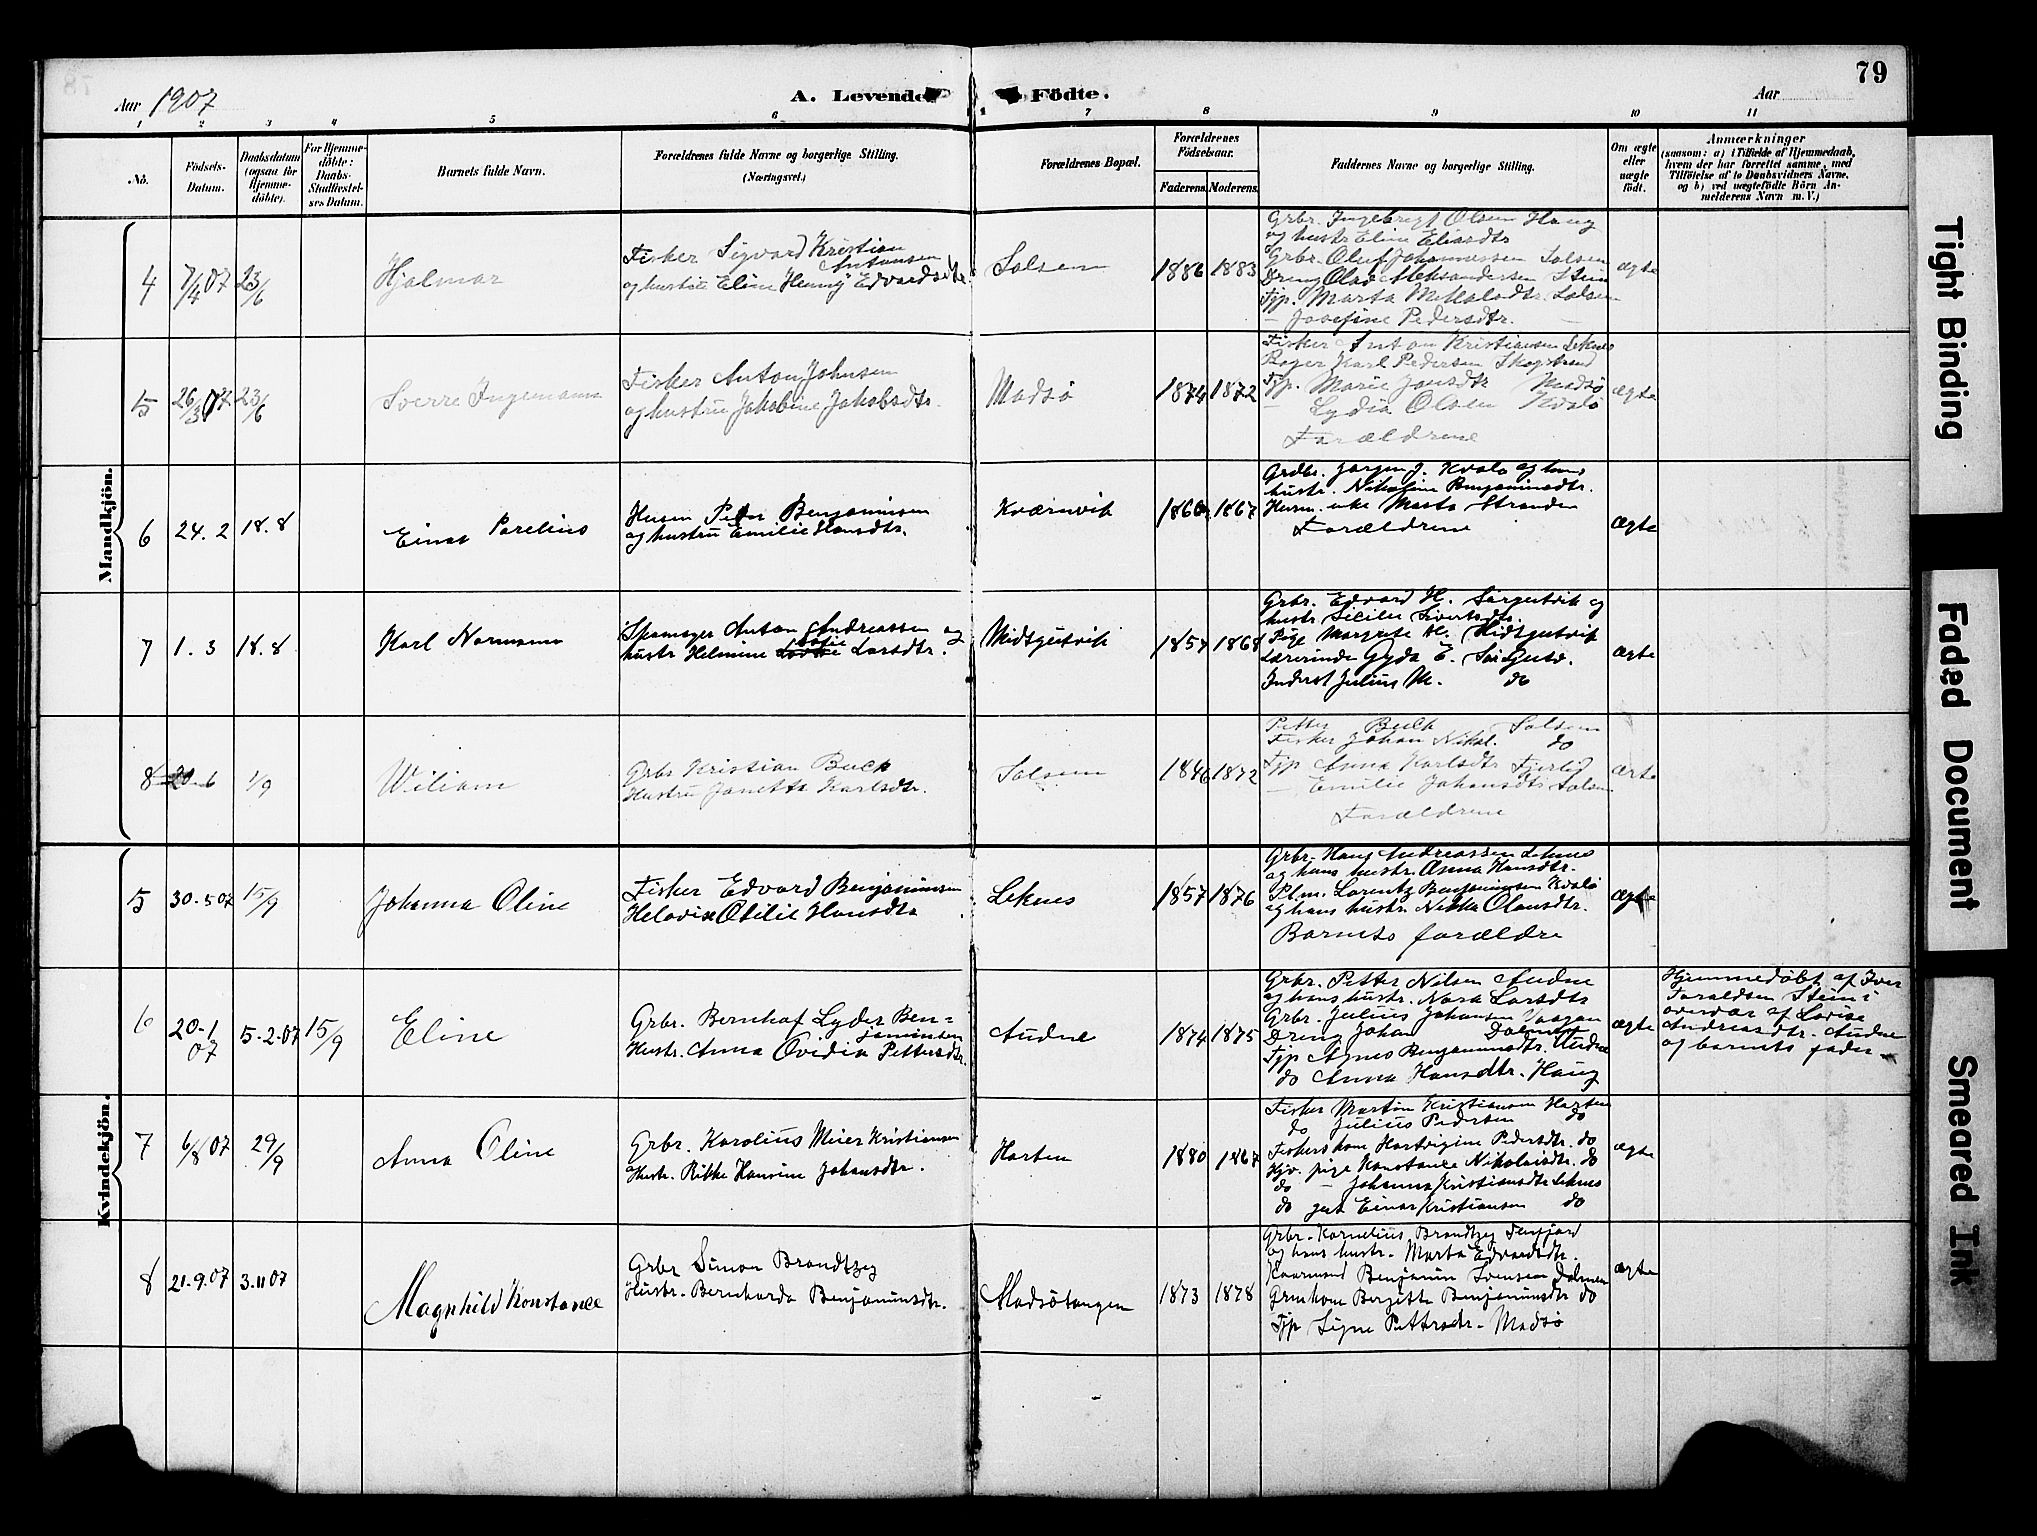 79
Aar 1907
A. Levende Födte.
Aar
1 2 3 4 5 6 7 8 9 10 11
No.
Födsels-
Datum.
Daabsdatum
(ogsaa for
Hjemme-
döbte).
For Hjemme-
döbte:
Daabs-
Stadfæstel-
ses Datum.
Barnets fulde Navn.
Forældrenes fulde Navne og borgerlige Stilling.
(Næringsvei.)
Forældrenes Bopæl.
Forældrenes
Födselsaar.
Faderens. Moderens.
Faddernes Navne og borgerlige Stilling.
Om ægte
eller
uægte
födt.
Anmærkninger
(saasom: a) i Tilfælde af Hjemmedaab,
hvem der har forrettet samme, med
Tilföielse af to Daabsvidners Navne,
og b) ved uægtefödte Börn An-
melderens Navn m.V.)
Mandkjön.
4
7/4 07
23/6
Hjalmar
Fisker Sigvard Kristian
Antonsen
og hustru Eline Henny Edvardsdtr.
Salsem
1886
1883
Grbr. Ingebrigt Olsen Haug
og hustr Eline Eliasdtr
Grbr. Oluf Johannessen Salsem
Dreng Olav Aleksandersen Stein
Fjp. Marta Mikkalsdtr. Salsem
— Josefine Pedersdtr. —
ægte
5
26/3 07
23/6
Sverre Ingemann
Fisker Anton Johnsen
og hustru Jakobine Jakobsdtr.
Madsø
1874
1872
Fisker Anton Kristiansen Leknes
Bager Karl Pedersen Skagstrand
Fjp. Marie Jonsdtr Madsø
— Lydia Olsen Kvalø
Forældrene
ægte
6
24. 2
18. 8
Einar Parelius
Husm Peter Benjaminsen
og hustru Emilie Hansdtr.
Kværnvik
1860
1867
Grdbr. Jørgen J. Kvalø og hans
hustr. Nikoline Benjaminsdtr.
Husm. enke Marta Stranden
Forældrene
ægte
7
1. 3
18. 8
Karl Normann
Skomager Anton Andreassen og
hustr Helmine Larsdtr.
Midtgutvik
1857
1868
Grbr. Edvard H. Sørgutvik og
hustr Sililie Sivertsdtr.
Pige Margrete M. Midtgutvik
Lærerinde Gyda E. Sørgutv.
Inderst Julius M. do
ægte
8
20. 6
1/9
Wiliam
Grbr Kristian Buch
Hustru Janetta Karlsdtr.
Salsem
1846
1872
Petter Buch Salsem
Fisker Johan Nikol. do
Fjp Anna Karlsdtr Fjerlid
— Emilie Johansdtr Salsem
Forældrene
ægte
Kvindekjön.
5
30. 5 07
15/9
Johanna Oline
Fisker Edvard Benjaminsen
Helovise Otilie Hansdtr
Leknes
1857
1876
Grbr. Hans Andreassen Leknes
og hans hustr. Anna Hansdtr.
Plm. Lorentz Benjaminsen Kvalø
og hans hustr. Nikka Olausdtr.
Barnets forældre
ægte
6
20-1
07
5-2-07
15/9
Eline
Grbr. Bernhof Lyder Ben=
jaminsen
Hustr. Anna Ovidia Pettersdtr.
Audne
1874
1875
Grbr. Petter Nilsen Audne
og hans hustr. Nora Larsdtr
Grbr. Julius Johansen Vaagan
Dreng Johan Dalmo
Fjp Agnes Benjaminsdtr. Audne
do Anna Hansdtr. Haug
ægte
Hjemmedøbt af Iver
Toraldsen Stein i
overvær af Lovise
Andreasdtr. Audne
og barnets fader.
7
6/8 07
29/9
Anna Oline
Grbr. Karolius Meier Kristiansen
Hustr. Rikke Hansine Johansdtr.
Horten
1880
1867
Fisker Martin Kristiansen Horten
do Julius Pedersen do
Fiskerskone Hartvigine Pedersdtr. do
Hjv. pige Konstance Nikolaisdtr. do
do — Johanna Kristiansdtr Leknes
do gut Einar Kristiansen do
ægte
8
21. 9. 07
3. 11 07
Magnhild Konstance
Grbr Simon Brandtzeg
Hustr. Bernharda Benjaminsdtr.
Madsøtangen
1873
1878
Grbr. Kornelius Brandtzeg
og hans hustr. Marta Edvardsdtr.
Kaarmand Benjamin Svensen Dalmo
Grmkone Bergitte Benjaminsdtr do
Fjp Signe Pettersdtr. Madsø
ægte
Tight Binding
Faded Document
Smeared Ink